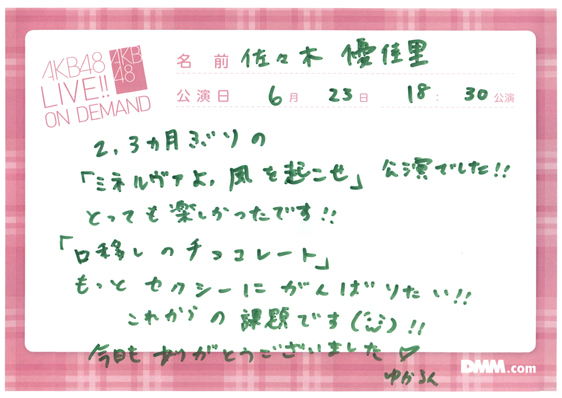 AKB48
LIVE!!
ON DEMAND
AKB
48
名前 佐々木 優佳里
公演日 6月 23日 18:30公演
2,3ヵ月ぶりの
「ミネルヴァよ、風を起こせ」公演でした!!
とっても楽しかったです!!
「口移しのチョコレート」
もっとセクシーにがんばりたい!!
これからの課題です(¨)!!
今日もありがとうございました♡
ゆかるん
DMM.com